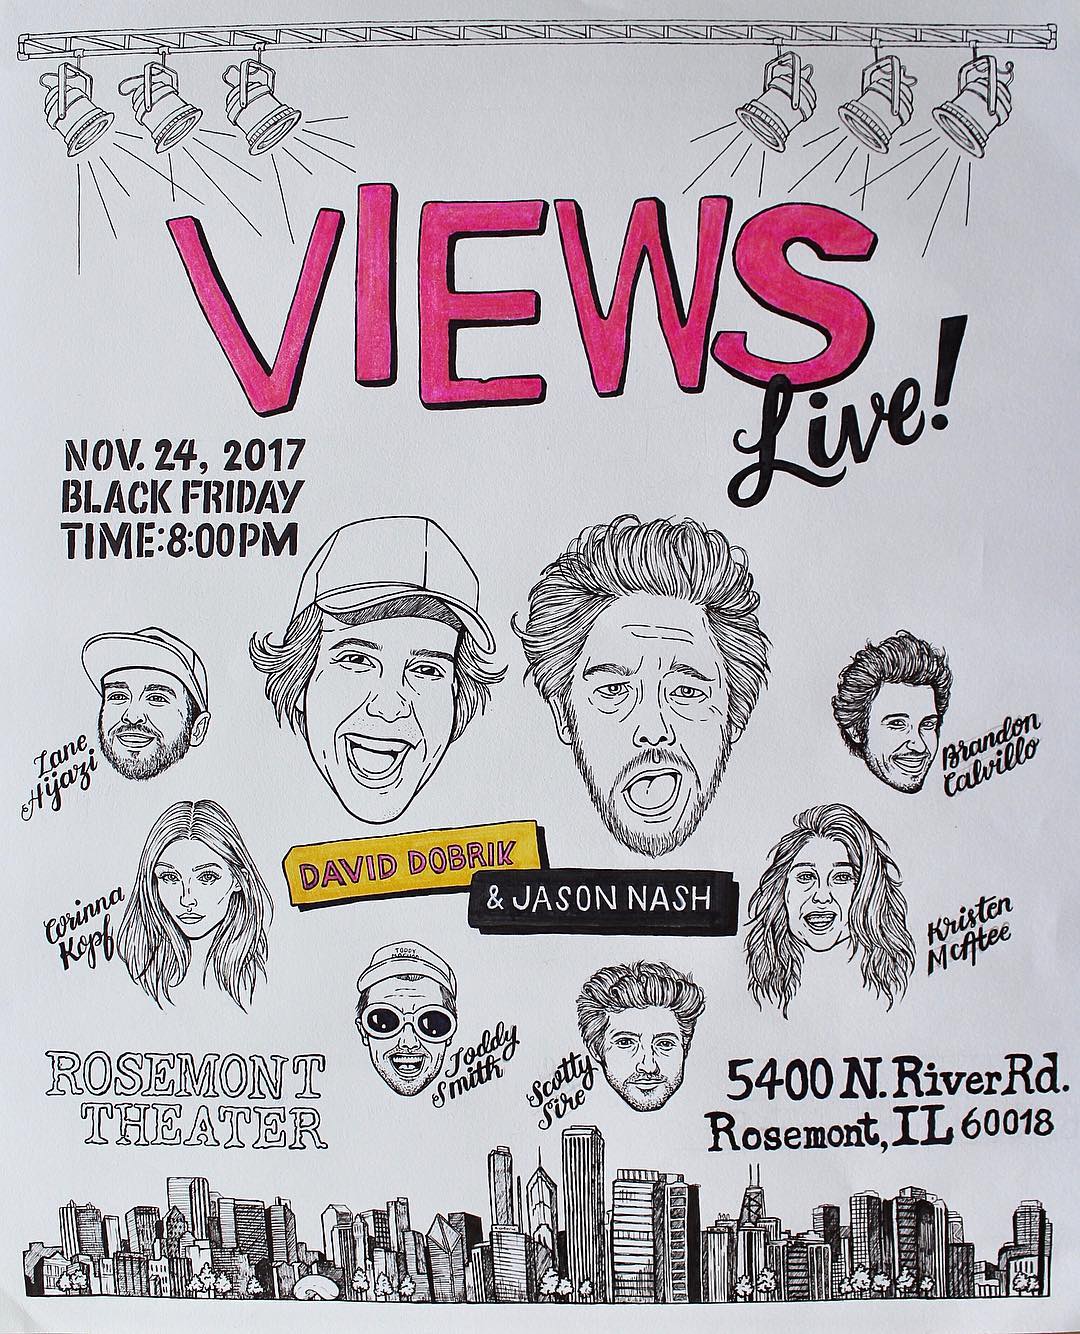 VIEWS
Live!
NOV. 24, 2017
BLACK FRIDAY
TIME:8:00PM
Zane
Hijazi
Brandon
Calvillo
DAVID DOBRIK
& JASON NASH
Corinna
Kopf
Kristen
McAtee
TODDY
Toddy
Smith
Scotty
Sire
ROSEMONT
THEATER
5400 N. River Rd.
Rosemont, IL 60018